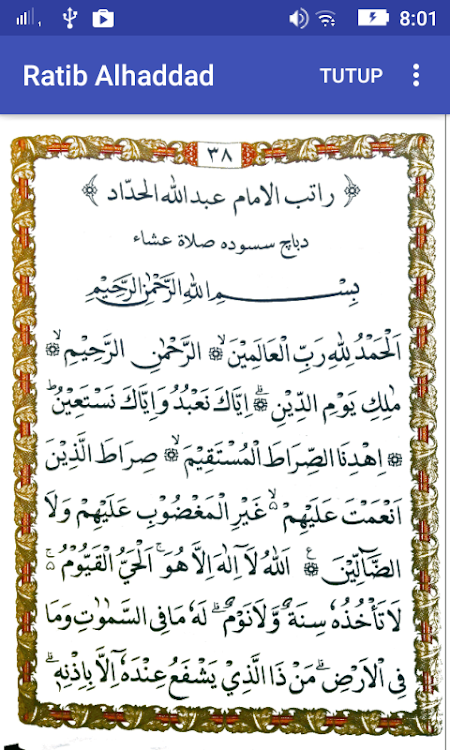 8:01
Ratib Alhaddad TUTUP
٣٨
﴿ راتب الامام عبدالله الحدّاد ﴾
دباچ سسوده صلاة عشاء
بِسْمِ اللهِ الرَّحْمٰنِ الرَّحِيْمِ
اَلْحَمْدُ لِلّٰهِ رَبِّ الْعَالَمِيْنَ ۙ الرَّحْمٰنِ الرَّحِيْمِ ۙ
مٰلِكِ يَوْمِ الدِّيْنِ ۗ اِيَّاكَ نَعْبُدُ وَاِيَّاكَ نَسْتَعِيْنُ ۗ
اِهْدِنَا الصِّرَاطَ الْمُسْتَقِيْمَ ۙ صِرَاطَ الَّذِيْنَ
اَنْعَمْتَ عَلَيْهِمْ ۙ غَيْرِ الْمَغْضُوْبِ عَلَيْهِمْ وَلَا
الضَّآلِّيْنَ ۚ اَللهُ لَآ اِلٰهَ اِلَّا هُوَ ۚ اَلْحَيُّ الْقَيُّوْمُ ۚ
لَا تَأْخُذُهُ سِنَةٌ وَّلَا نَوْمٌ ۗ لَهُ مَا فِى السَّمٰوٰتِ وَمَا
فِى الْاَرْضِ ۗ مَنْ ذَا الَّذِيْ يَشْفَعُ عِنْدَهُ اِلَّا بِاِذْنِهِ ۗ